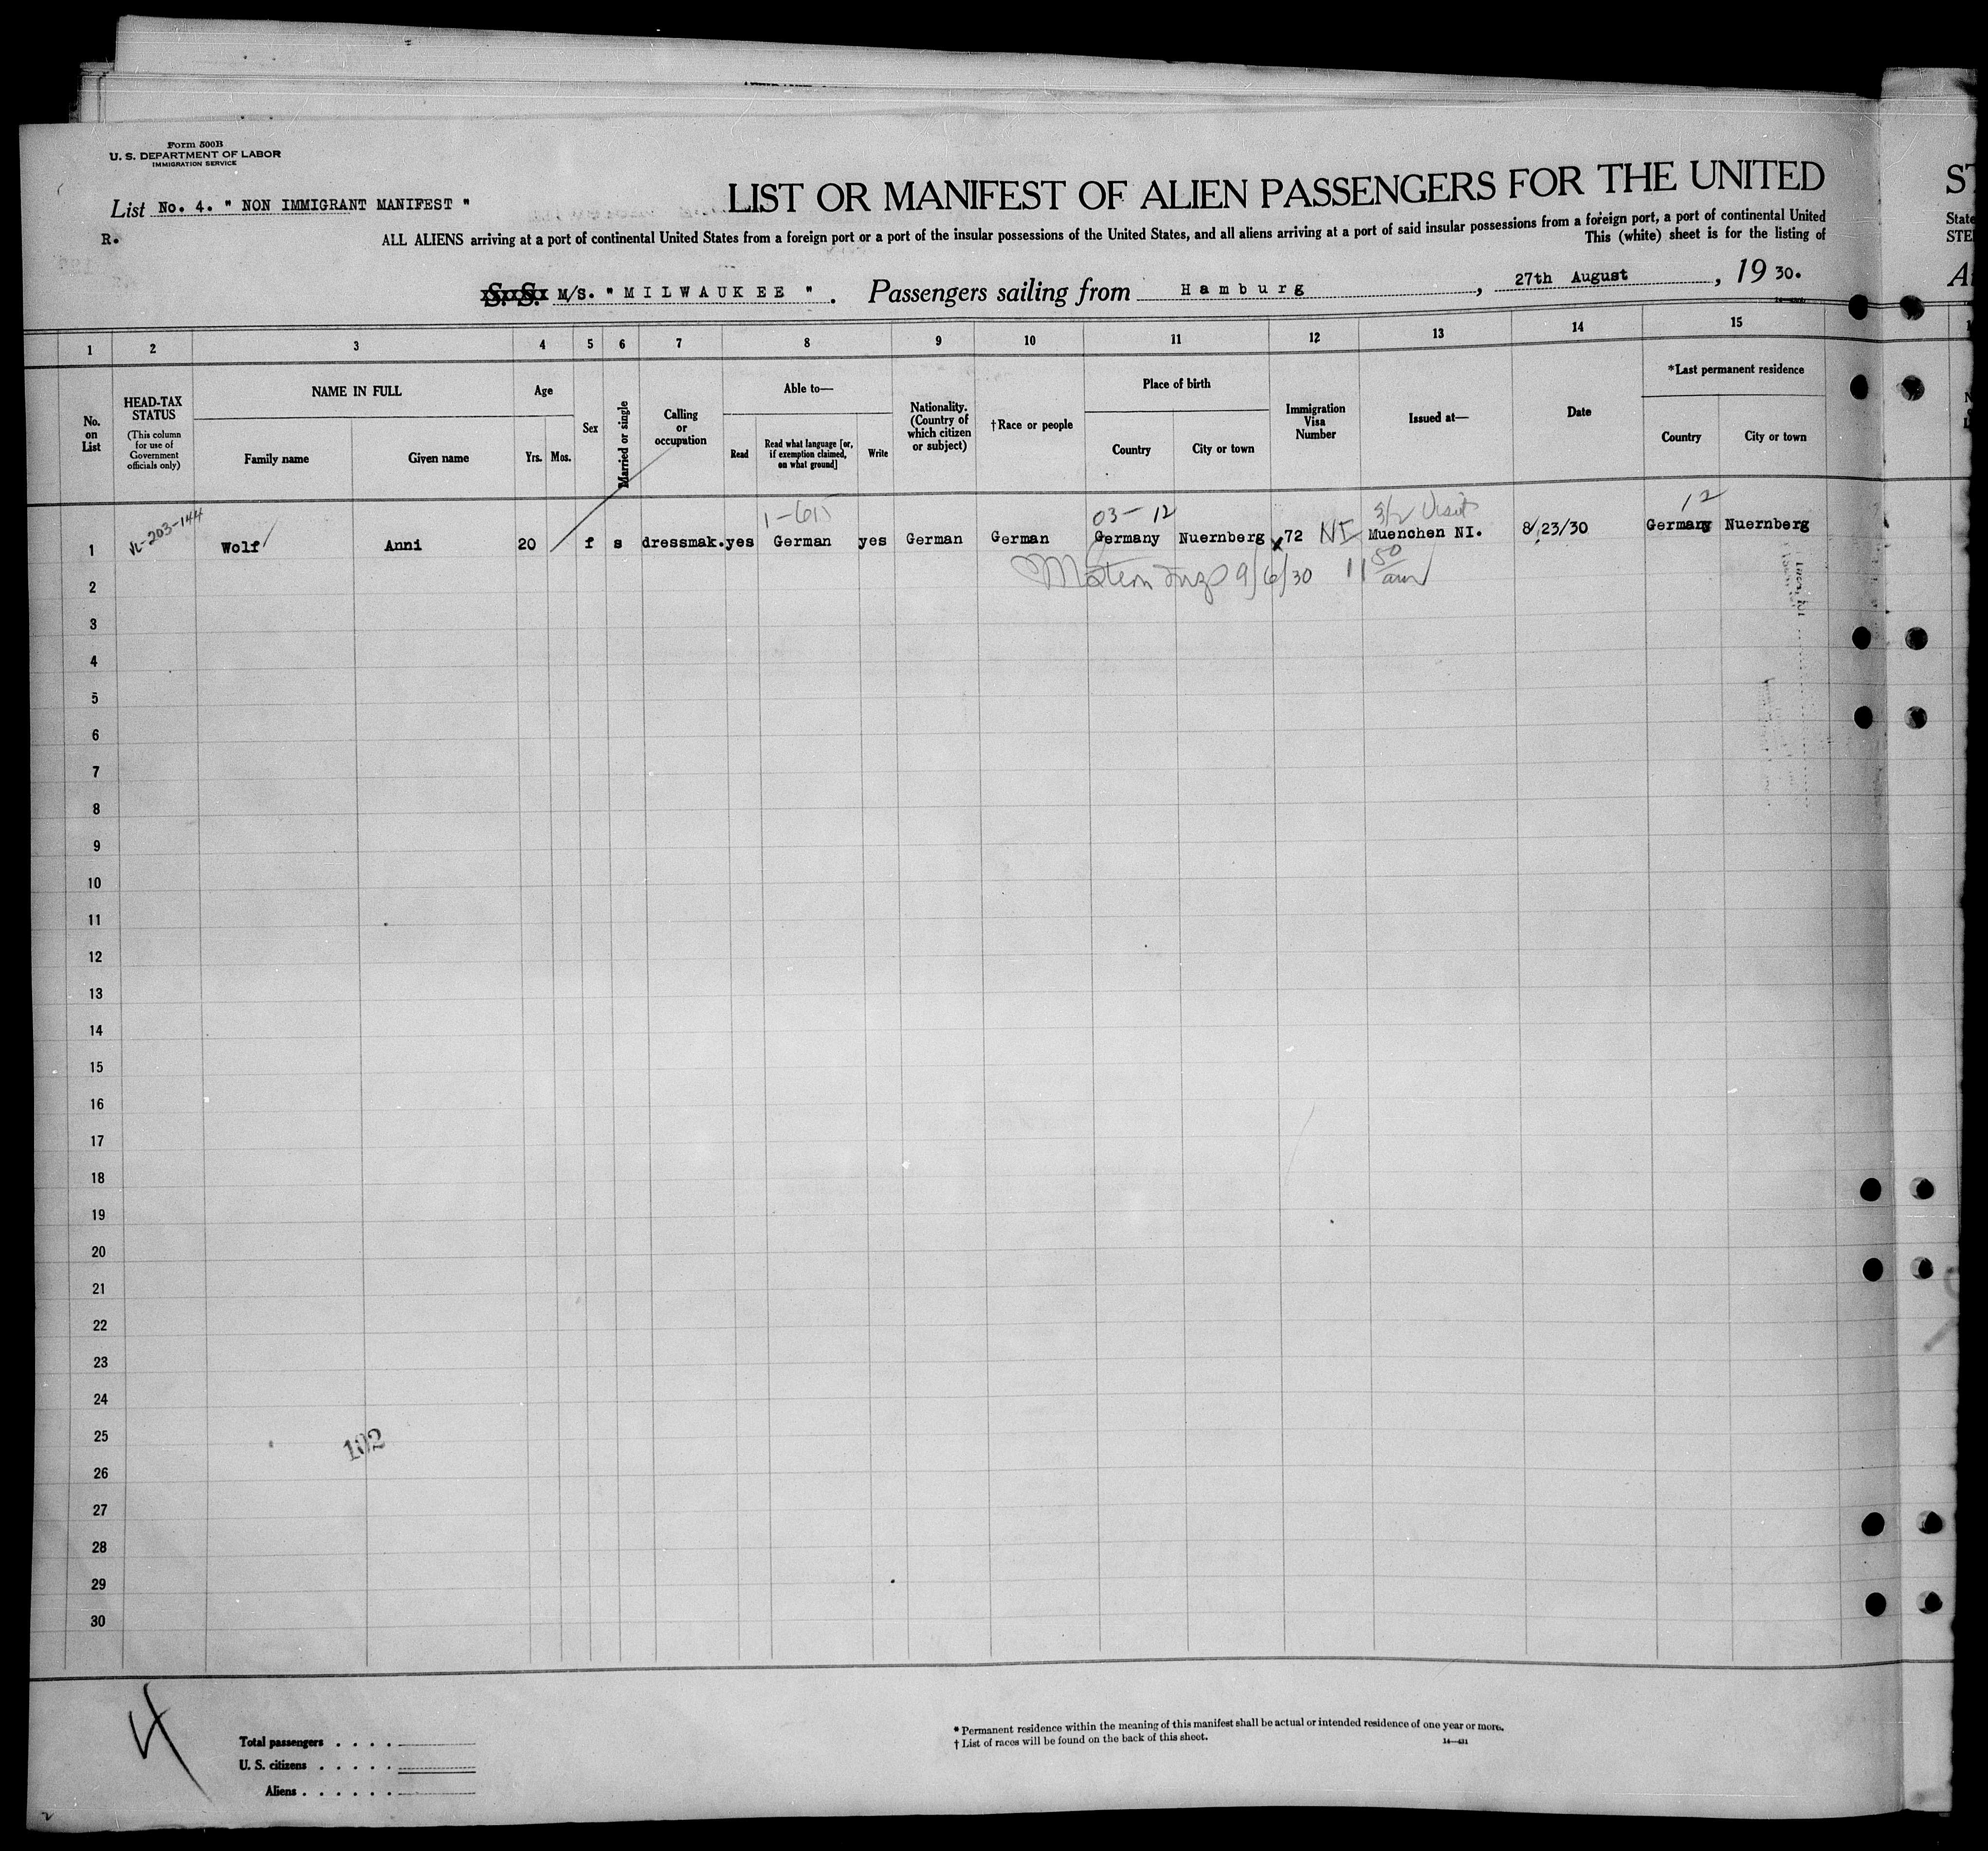 Form 500B
U. S. DEPARTMENT OF LABOR
IMMIGRATION SERVICE
List No. 4. " NON IMMIGRANT MANIFEST "
R.
LIST OR MANIFEST OF ALIEN PASSENGERS FOR THE UNITED
ST
ALL ALIENS arriving at a port of continental United States from a foreign port or a port of the insular possessions of the United States, and all aliens arriving at a port of said insular possessions from a foreign port, a port of continental United
State
This (white) sheet is for the listing of
STE
S. S. M/S. " M I L W A U K E E " . Passengers sailing from H a m b u r g , 27th August , 19 30.
1 2 3 4 5 6 7 8 9 10 11 12 13 14 15
No. on List
HEAD-TAX STATUS
(This column for use of Government officials only)
NAME IN FULL
Family name
Given name
Age
Yrs. Mos.
Sex
Married or single
Calling or occupation
Able to—
Read
Read what language [or, if exemption claimed, on what ground]
Write
Nationality. (Country of which citizen or subject)
†Race or people
Place of birth
Country
City or town
Immigration Visa Number
Issued at—
Date
*Last permanent residence
Country
City or town
03-12 3/2 Visit 12
1 Wolf Anni 20 f s dressmak. yes German yes German German Germany Nuernberg 72 NI Muenchen NI. 8/23/30 Germany Nuernberg
9/6/30 11 50 am
2
3
4
5
6
7
8
9
10
11
12
13
14
15
16
17
18
19
20
21
22
23
24
25
102
26
27
28
29
30
4
Total passengers . . . .
U. S. citizens . . . . .
Aliens . . . . . .
* Permanent residence within the meaning of this manifest shall be actual or intended residence of one year or more.
† List of races will be found on the back of this sheet.
14—431
2